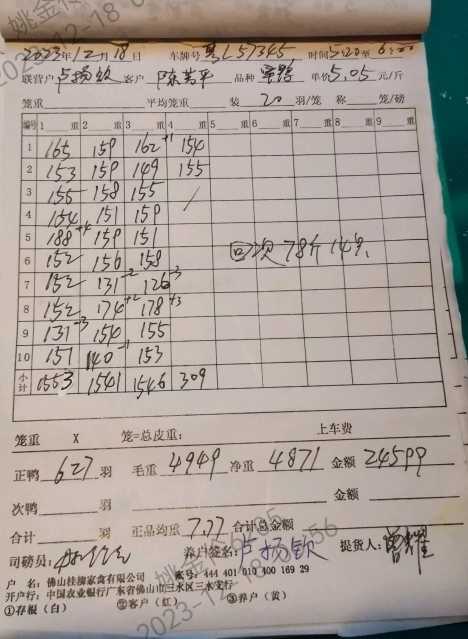 2023年12月18日 车牌号 粤L57345 时间5:20至6:00
联营户 卢扬钦 客户 陈芳平 品种 单价5.05元/斤
笼重 平均笼重 装 20 羽/笼 称 笼/磅
编号 1 重 2 重 3 重 4 重 5 重 6 重 7 重 8 重 9 重
1 165 159 162+1 154
2 153 159 149 155
3 155 158 155 /
4 154 151 159
5 188+4 159 151
6 152 156 158 回次78斤14只
7 152 131-2 126-3
8 152 174+2 178+3
9 131-3 154 155
10 151 140-1 153
小计 1553 1541 1546 309
笼重 X 笼=总皮重: 上车费
正鸭 627 羽 毛重 4949 净重 4871 金额 24599
次鸭 羽 金额
合计 羽 正品均重 7.77 合计总金额
司磅员: 养户签名: 卢扬钦 提货人:
户 名: 佛山桂柳家禽有限公司 账号: 444 401 010 400 169 29
开户行: 中国农业银行广东省佛山市三水区三水支行
①存根(白) ②客户(红) ③养户(黄)